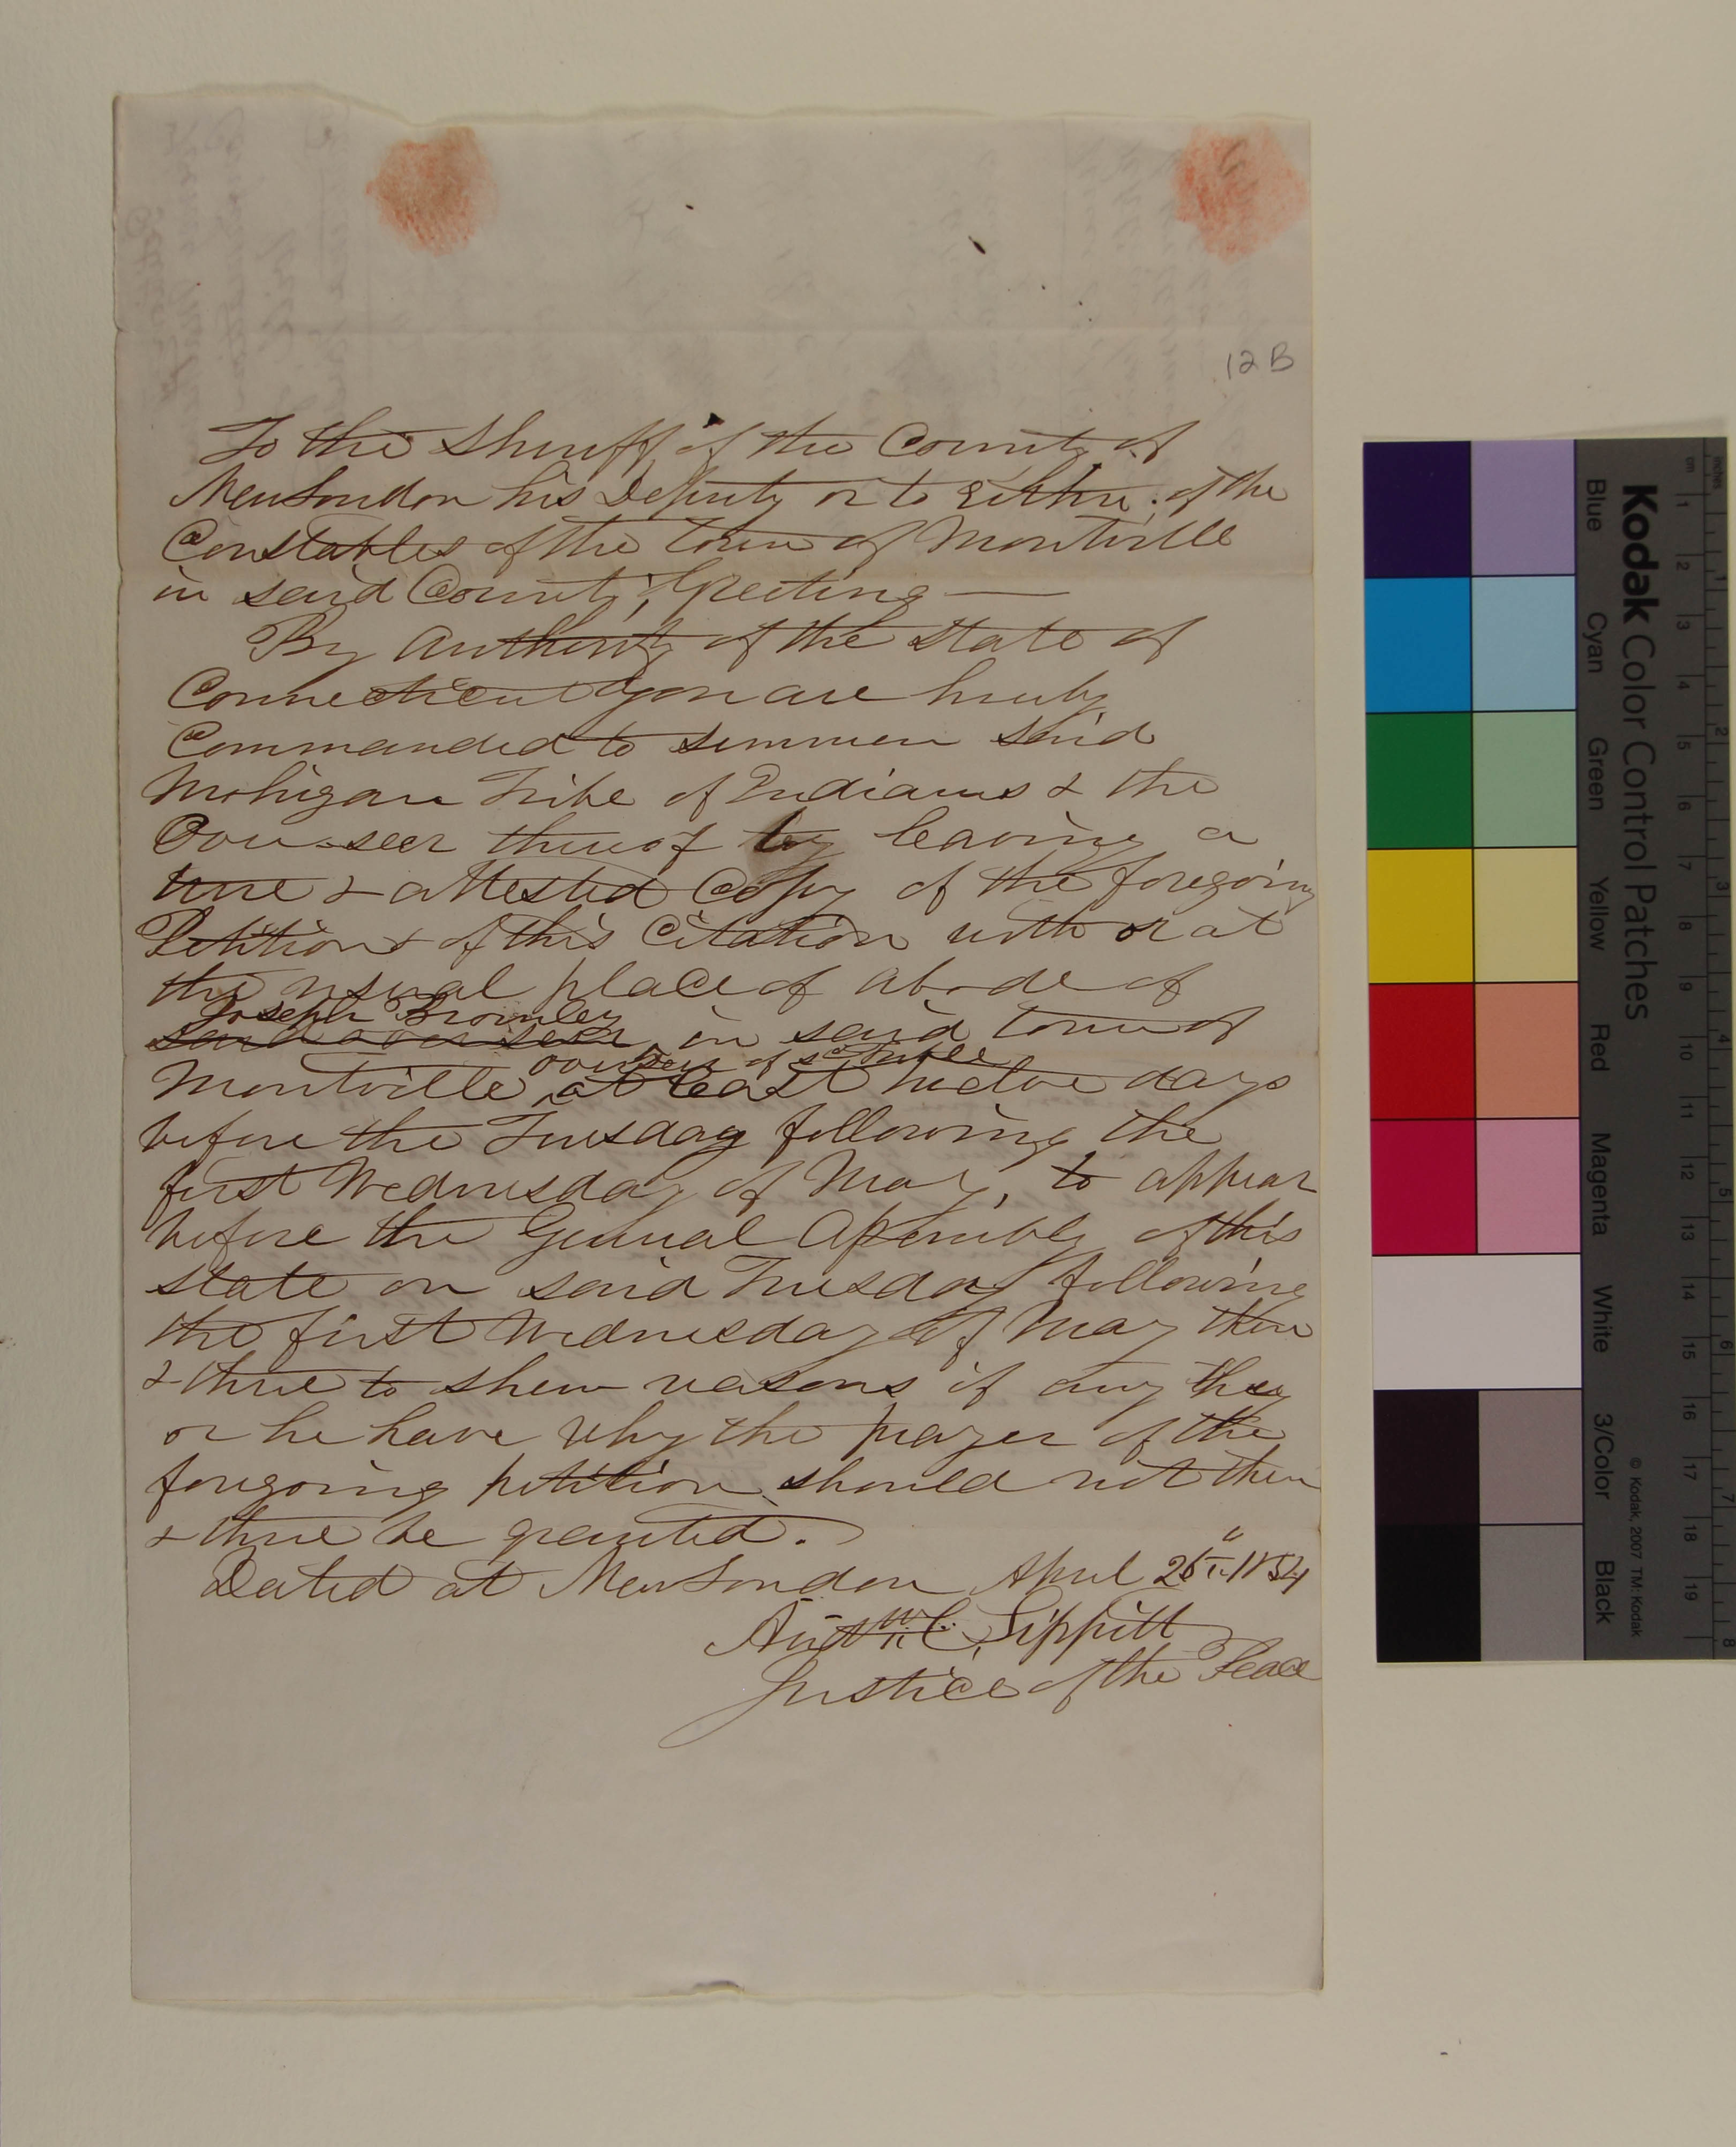 12 B
To the Sheriff of the County of
New London his Deputy or to either of the
Constables of the Town of Montville
in said County, Greeting —
By Authority of the State of
Connecticut you are hereby
Commanded to summon said
Mohigan Tribe of Indians & the
Over-seer thereof by leaving a
true & attested Copy of the foregoing
Petition & of this Citation with or at
the usual place of abode of
Joseph Bromley
said overseer in said town of
overseer of sd Tribe
Montville at least twelve days
before the Tuesday following the
first Wednesday of May, to appear
before the General Assembly of this
state on said Tuesday following
the first Wednesday of May then
& there to shew reasons if any they
or he have why the prayer of the
foregoing petition should not then
& there be granted.
Dated at New London April 1854
C. Lippitt
Justice of the Peace
Kodak Color Control Patches
© Kodak, 2007 TM: Kodak
Blue Cyan Green Yellow Red Magenta White 3/Color Black
inches 1 2 3 4 5 6 7 8
cm 1 2 3 4 5 6 7 8 9 10 11 12 13 14 15 16 17 18 19